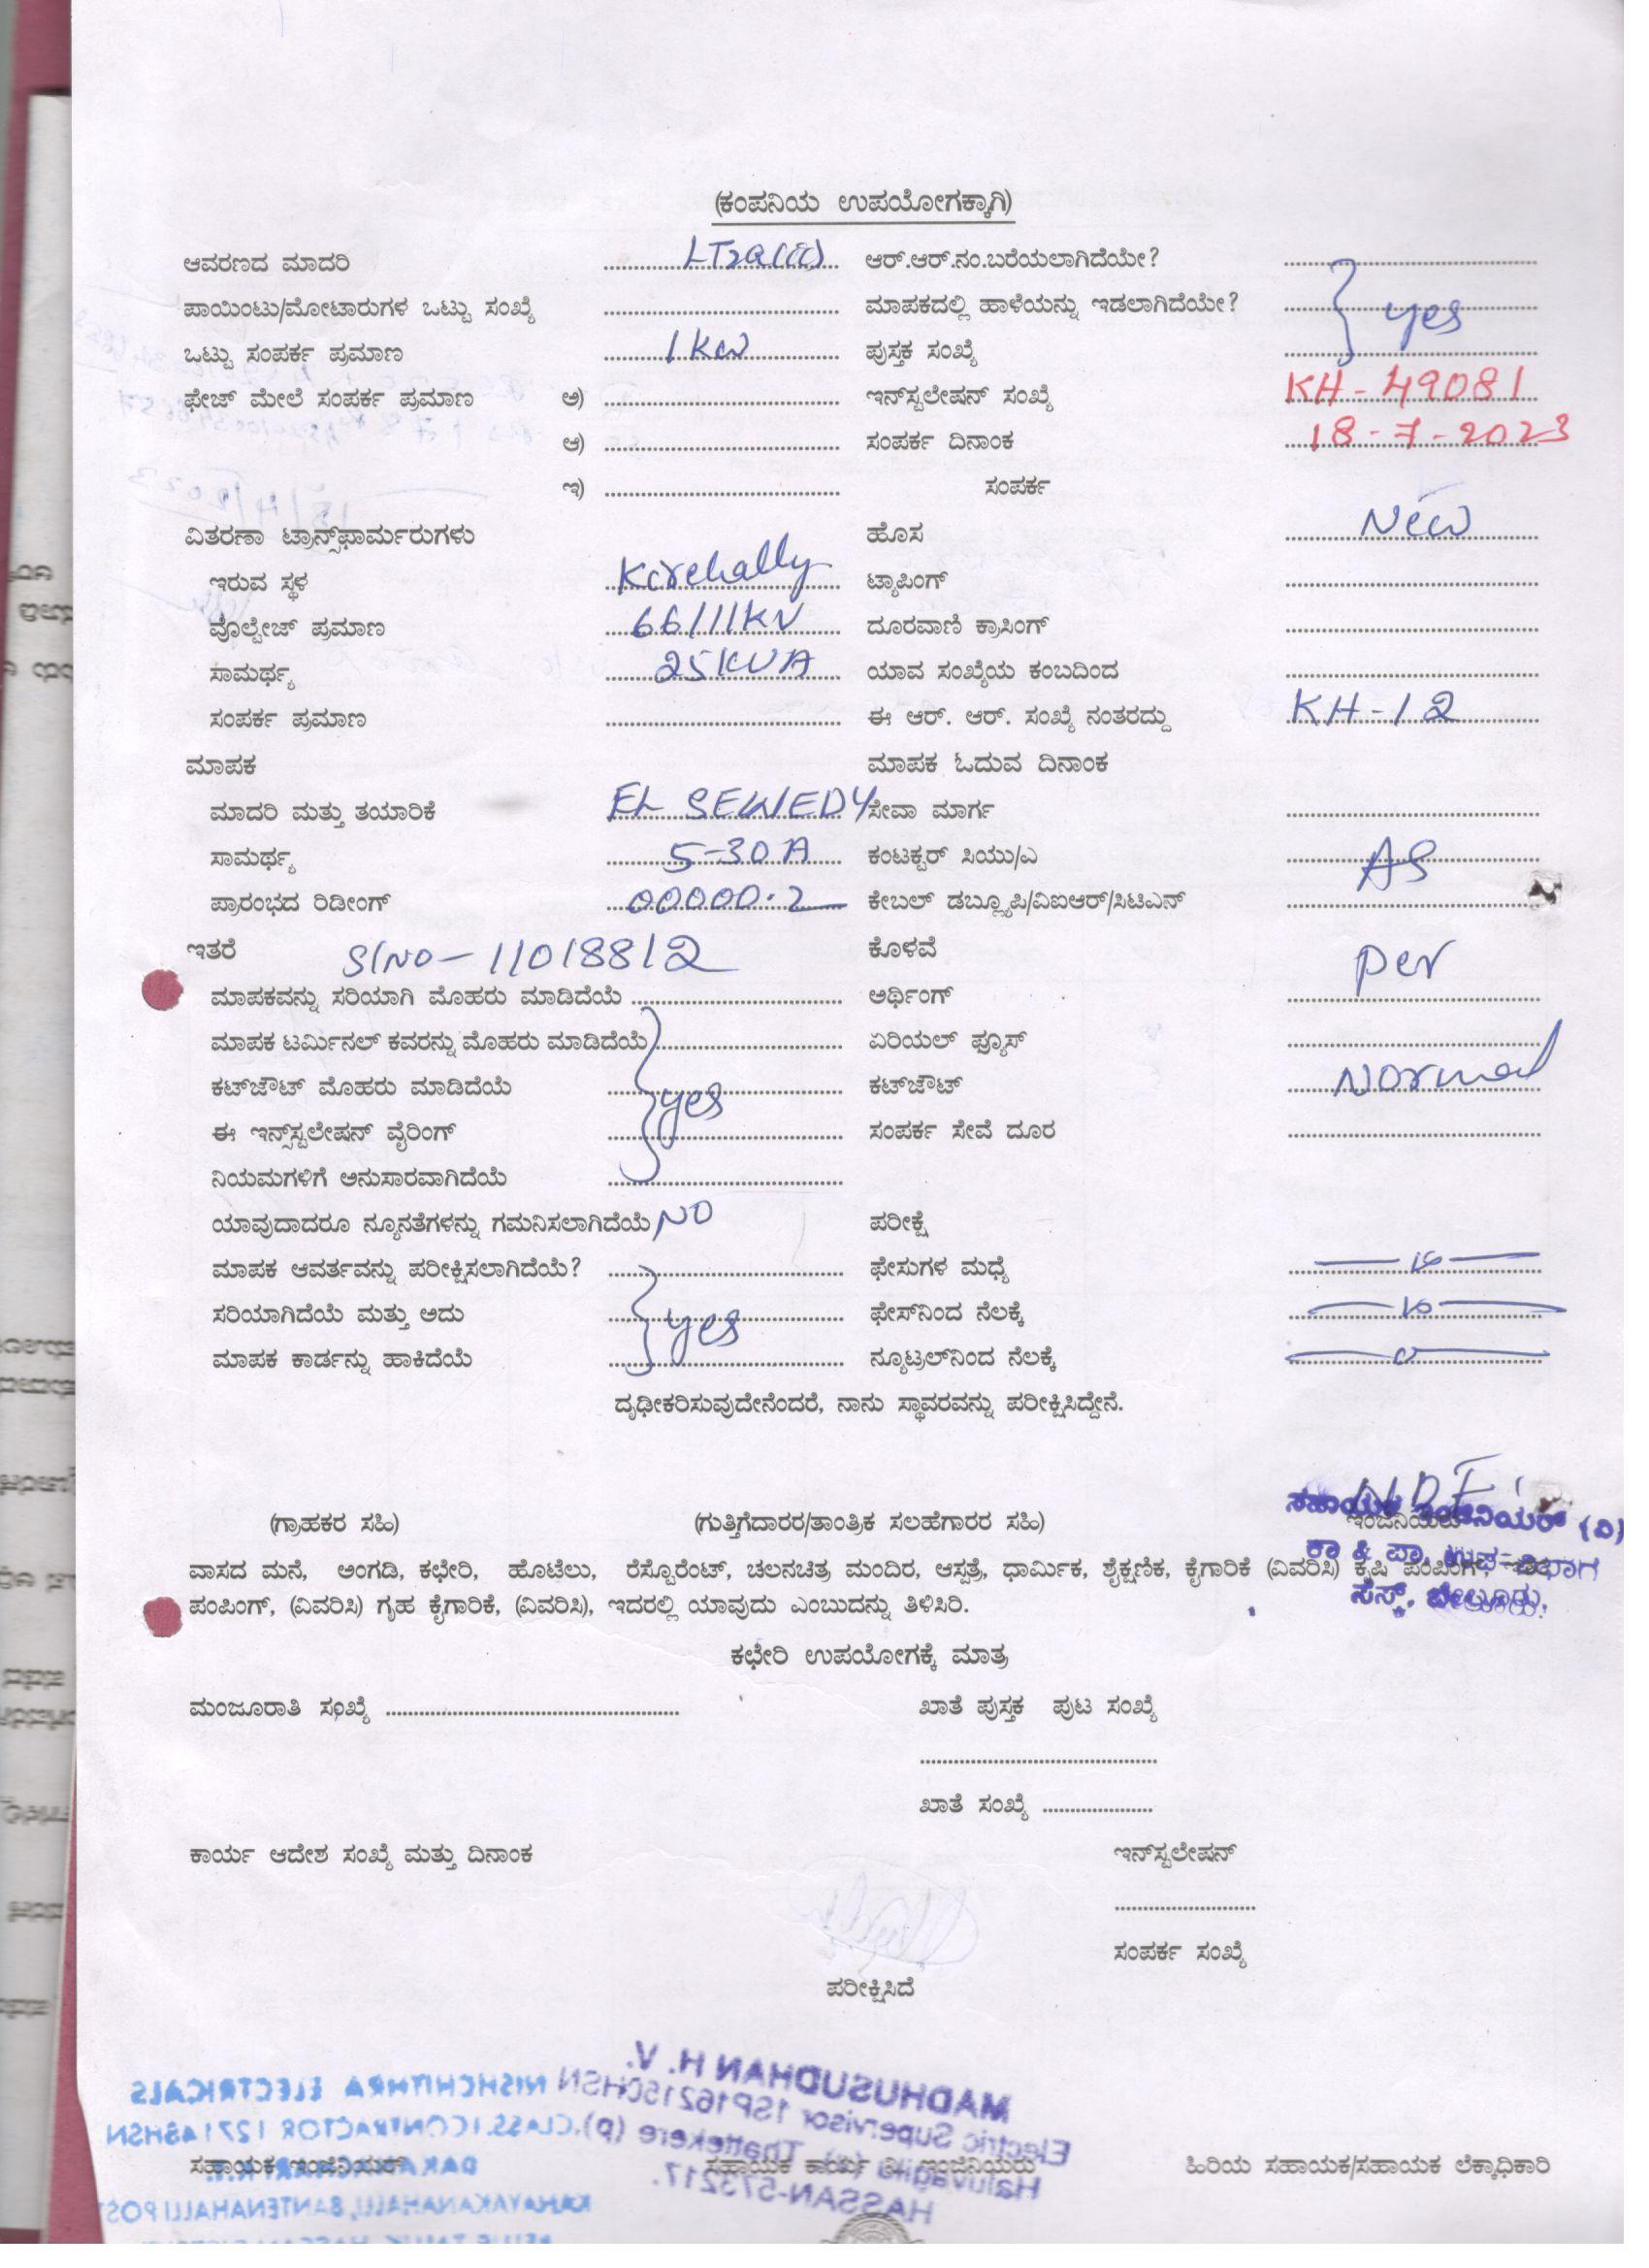 (ಕಂಪನಿಯ ಉಪಯೋಗಕ್ಕಾಗಿ)
ಆವರಣದ ಮಾದರಿ LT2a(ii) ಆರ್.ಆರ್.ನಂ.ಬರೆಯಲಾಗಿದೆಯೇ?
ಪಾಯಿಂಟು/ಮೋಟಾರುಗಳ ಒಟ್ಟು ಸಂಖ್ಯೆ ಮಾಪಕದಲ್ಲಿ ಹಾಳೆಯನ್ನು ಇಡಲಾಗಿದೆಯೇ? yes
ಒಟ್ಟು ಸಂಪರ್ಕ ಪ್ರಮಾಣ 1KW ಪುಸ್ತಕ ಸಂಖ್ಯೆ
ಫೇಜ್ ಮೇಲೆ ಸಂಪರ್ಕ ಪ್ರಮಾಣ ಅ) ಇನ್‌ಸ್ಟಲೇಷನ್ ಸಂಖ್ಯೆ KH-49081
ಆ) ಸಂಪರ್ಕ ದಿನಾಂಕ 18-7-2023
ಇ) ಸಂಪರ್ಕ
ವಿತರಣಾ ಟ್ರಾನ್ಸ್‌ಫಾರ್ಮರುಗಳು ಹೊಸ New
ಇರುವ ಸ್ಥಳ Karehally ಟ್ಯಾಪಿಂಗ್
ವೊಲ್ಟೇಜ್ ಪ್ರಮಾಣ 66/11KV ದೂರವಾಣಿ ಕ್ರಾಸಿಂಗ್
ಸಾಮರ್ಥ್ಯ 25KVA ಯಾವ ಸಂಖ್ಯೆಯ ಕಂಬದಿಂದ
ಸಂಪರ್ಕ ಪ್ರಮಾಣ ಈ ಆರ್. ಆರ್. ಸಂಖ್ಯೆ ನಂತರದ್ದು KH-12
ಮಾಪಕ ಮಾಪಕ ಓದುವ ದಿನಾಂಕ
ಮಾದರಿ ಮತ್ತು ತಯಾರಿಕೆ EL SEWEDY ಸೇವಾ ಮಾರ್ಗ
ಸಾಮರ್ಥ್ಯ 5-30A ಕಂಟಕ್ಟರ್ ಸಿಯು/ಎ AS
ಪ್ರಾರಂಭದ ರಿಡೀಂಗ್ 00000.2 ಕೇಬಲ್ ಡಬ್ಲ್ಯೂಪಿ/ವಿಐಆರ್/ಸಿಟಿಎನ್
ಇತರೆ Sl NO-11018812 ಕೊಳವೆ per
ಮಾಪಕವನ್ನು ಸರಿಯಾಗಿ ಮೊಹರು ಮಾಡಿದೆಯೆ ಅರ್ಥಿಂಗ್
ಮಾಪಕ ಟರ್ಮಿನಲ್ ಕವರನ್ನು ಮೊಹರು ಮಾಡಿದೆಯೆ ಏರಿಯಲ್ ಫ್ಯೂಸ್
ಕಟ್‌ಔಟ್ ಮೊಹರು ಮಾಡಿದೆಯೆ yes ಕಟ್‌ಔಟ್ Normal
ಈ ಇನ್ಸ್‌ಸ್ಟಲೇಷನ್ ವೈರಿಂಗ್ ಸಂಪರ್ಕ ಸೇವೆ ದೂರ
ನಿಯಮಗಳಿಗೆ ಅನುಸಾರವಾಗಿದೆಯೆ
ಯಾವುದಾದರೂ ನ್ಯೂನತೆಗಳನ್ನು ಗಮನಿಸಲಾಗಿದೆಯೆ NO ಪರೀಕ್ಷೆ
ಮಾಪಕ ಆವರ್ತವನ್ನು ಪರೀಕ್ಷಿಸಲಾಗಿದೆಯೆ? ಫೇಸುಗಳ ಮಧ್ಯೆ
ಸರಿಯಾಗಿದೆಯೆ ಮತ್ತು ಅದು yes ಫೇಸ್‌ನಿಂದ ನೆಲಕ್ಕೆ
ಮಾಪಕ ಕಾರ್ಡನ್ನು ಹಾಕಿದೆಯೆ ನ್ಯೂಟ್ರಲ್‌ನಿಂದ ನೆಲಕ್ಕೆ
ದೃಢೀಕರಿಸುವುದೇನೆಂದರೆ, ನಾನು ಸ್ಥಾವರವನ್ನು ಪರೀಕ್ಷಿಸಿದ್ದೇನೆ.
(ಗ್ರಾಹಕರ ಸಹಿ) (ಗುತ್ತಿಗೆದಾರರ/ತಾಂತ್ರಿಕ ಸಲಹೆಗಾರರ ಸಹಿ) ಇಂಜಿನಿಯರು
ಸಹಾಯಕ ಇಂಜಿನಿಯರ್ (ವಿ)
ಕಾ & ಪಾ, ಉಪ-ವಿಭಾಗ
ಸೆಸ್ಕ್, ಬೇಲೂರು.
ವಾಸದ ಮನೆ, ಅಂಗಡಿ, ಕಛೇರಿ, ಹೊಟೆಲು, ರೆಸ್ಟೊರೆಂಟ್, ಚಲನಚಿತ್ರ ಮಂದಿರ, ಆಸ್ಪತ್ರೆ, ಧಾರ್ಮಿಕ, ಶೈಕ್ಷಣಿಕ, ಕೈಗಾರಿಕೆ (ವಿವರಿಸಿ) ಕೃಷಿ ಪಂಪಿಂಗ್, ಇತರ
ಪಂಪಿಂಗ್, (ವಿವರಿಸಿ) ಗೃಹ ಕೈಗಾರಿಕೆ, (ವಿವರಿಸಿ), ಇದರಲ್ಲಿ ಯಾವುದು ಎಂಬುದನ್ನು ತಿಳಿಸಿರಿ.
ಕಛೇರಿ ಉಪಯೋಗಕ್ಕೆ ಮಾತ್ರ
ಮಂಜೂರಾತಿ ಸಂಖ್ಯೆ ಖಾತೆ ಪುಸ್ತಕ ಪುಟ ಸಂಖ್ಯೆ
ಖಾತೆ ಸಂಖ್ಯೆ
ಕಾರ್ಯ ಆದೇಶ ಸಂಖ್ಯೆ ಮತ್ತು ದಿನಾಂಕ ಇನ್‌ಸ್ಟಲೇಷನ್
ಸಂಪರ್ಕ ಸಂಖ್ಯೆ
ಪರೀಕ್ಷಿಸಿದೆ
MADHUSUDHAN H. V.
Electric Supervisor 1SP162150HSN
Haluvagilu (v), Thattekere (p),
HASSAN-573217.
NISHCHITHRA ELECTRICALS
CLASS.I CONTRACTOR
ಸಹಾಯಕ ಇಂಜಿನಿಯರ್ ಸಹಾಯಕ ಕಾರ್ಯ ನಿ ಇಂಜಿನಿಯರು ಹಿರಿಯ ಸಹಾಯಕ/ಸಹಾಯಕ ಲೆಕ್ಕಾಧಿಕಾರಿ